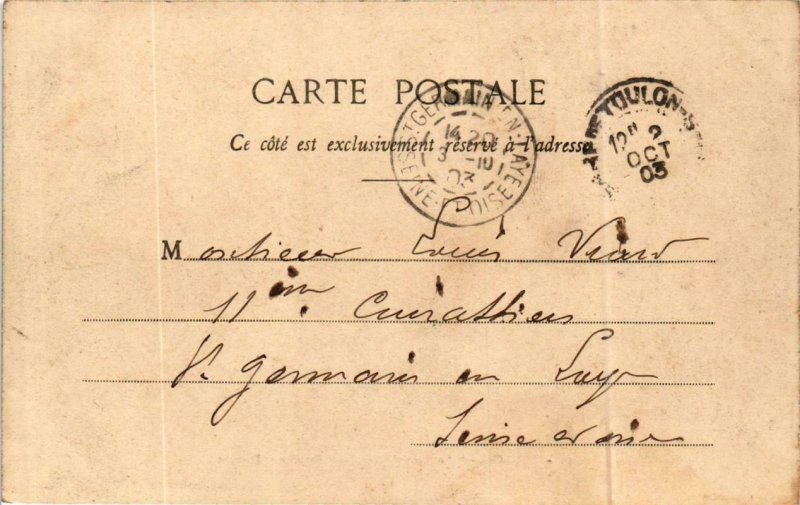 CARTE POSTALE
Ce côté est exclusivement réservé à l'adresse
ST GERMAIN-EN-LAYE
14 20
3 -10
03
SEINE-ET-OISE
TOULON
12H 2
OCT
03
Monsieur Louis Viard
11ème Cuirassiers
St Germain en Laye
Seine et oise